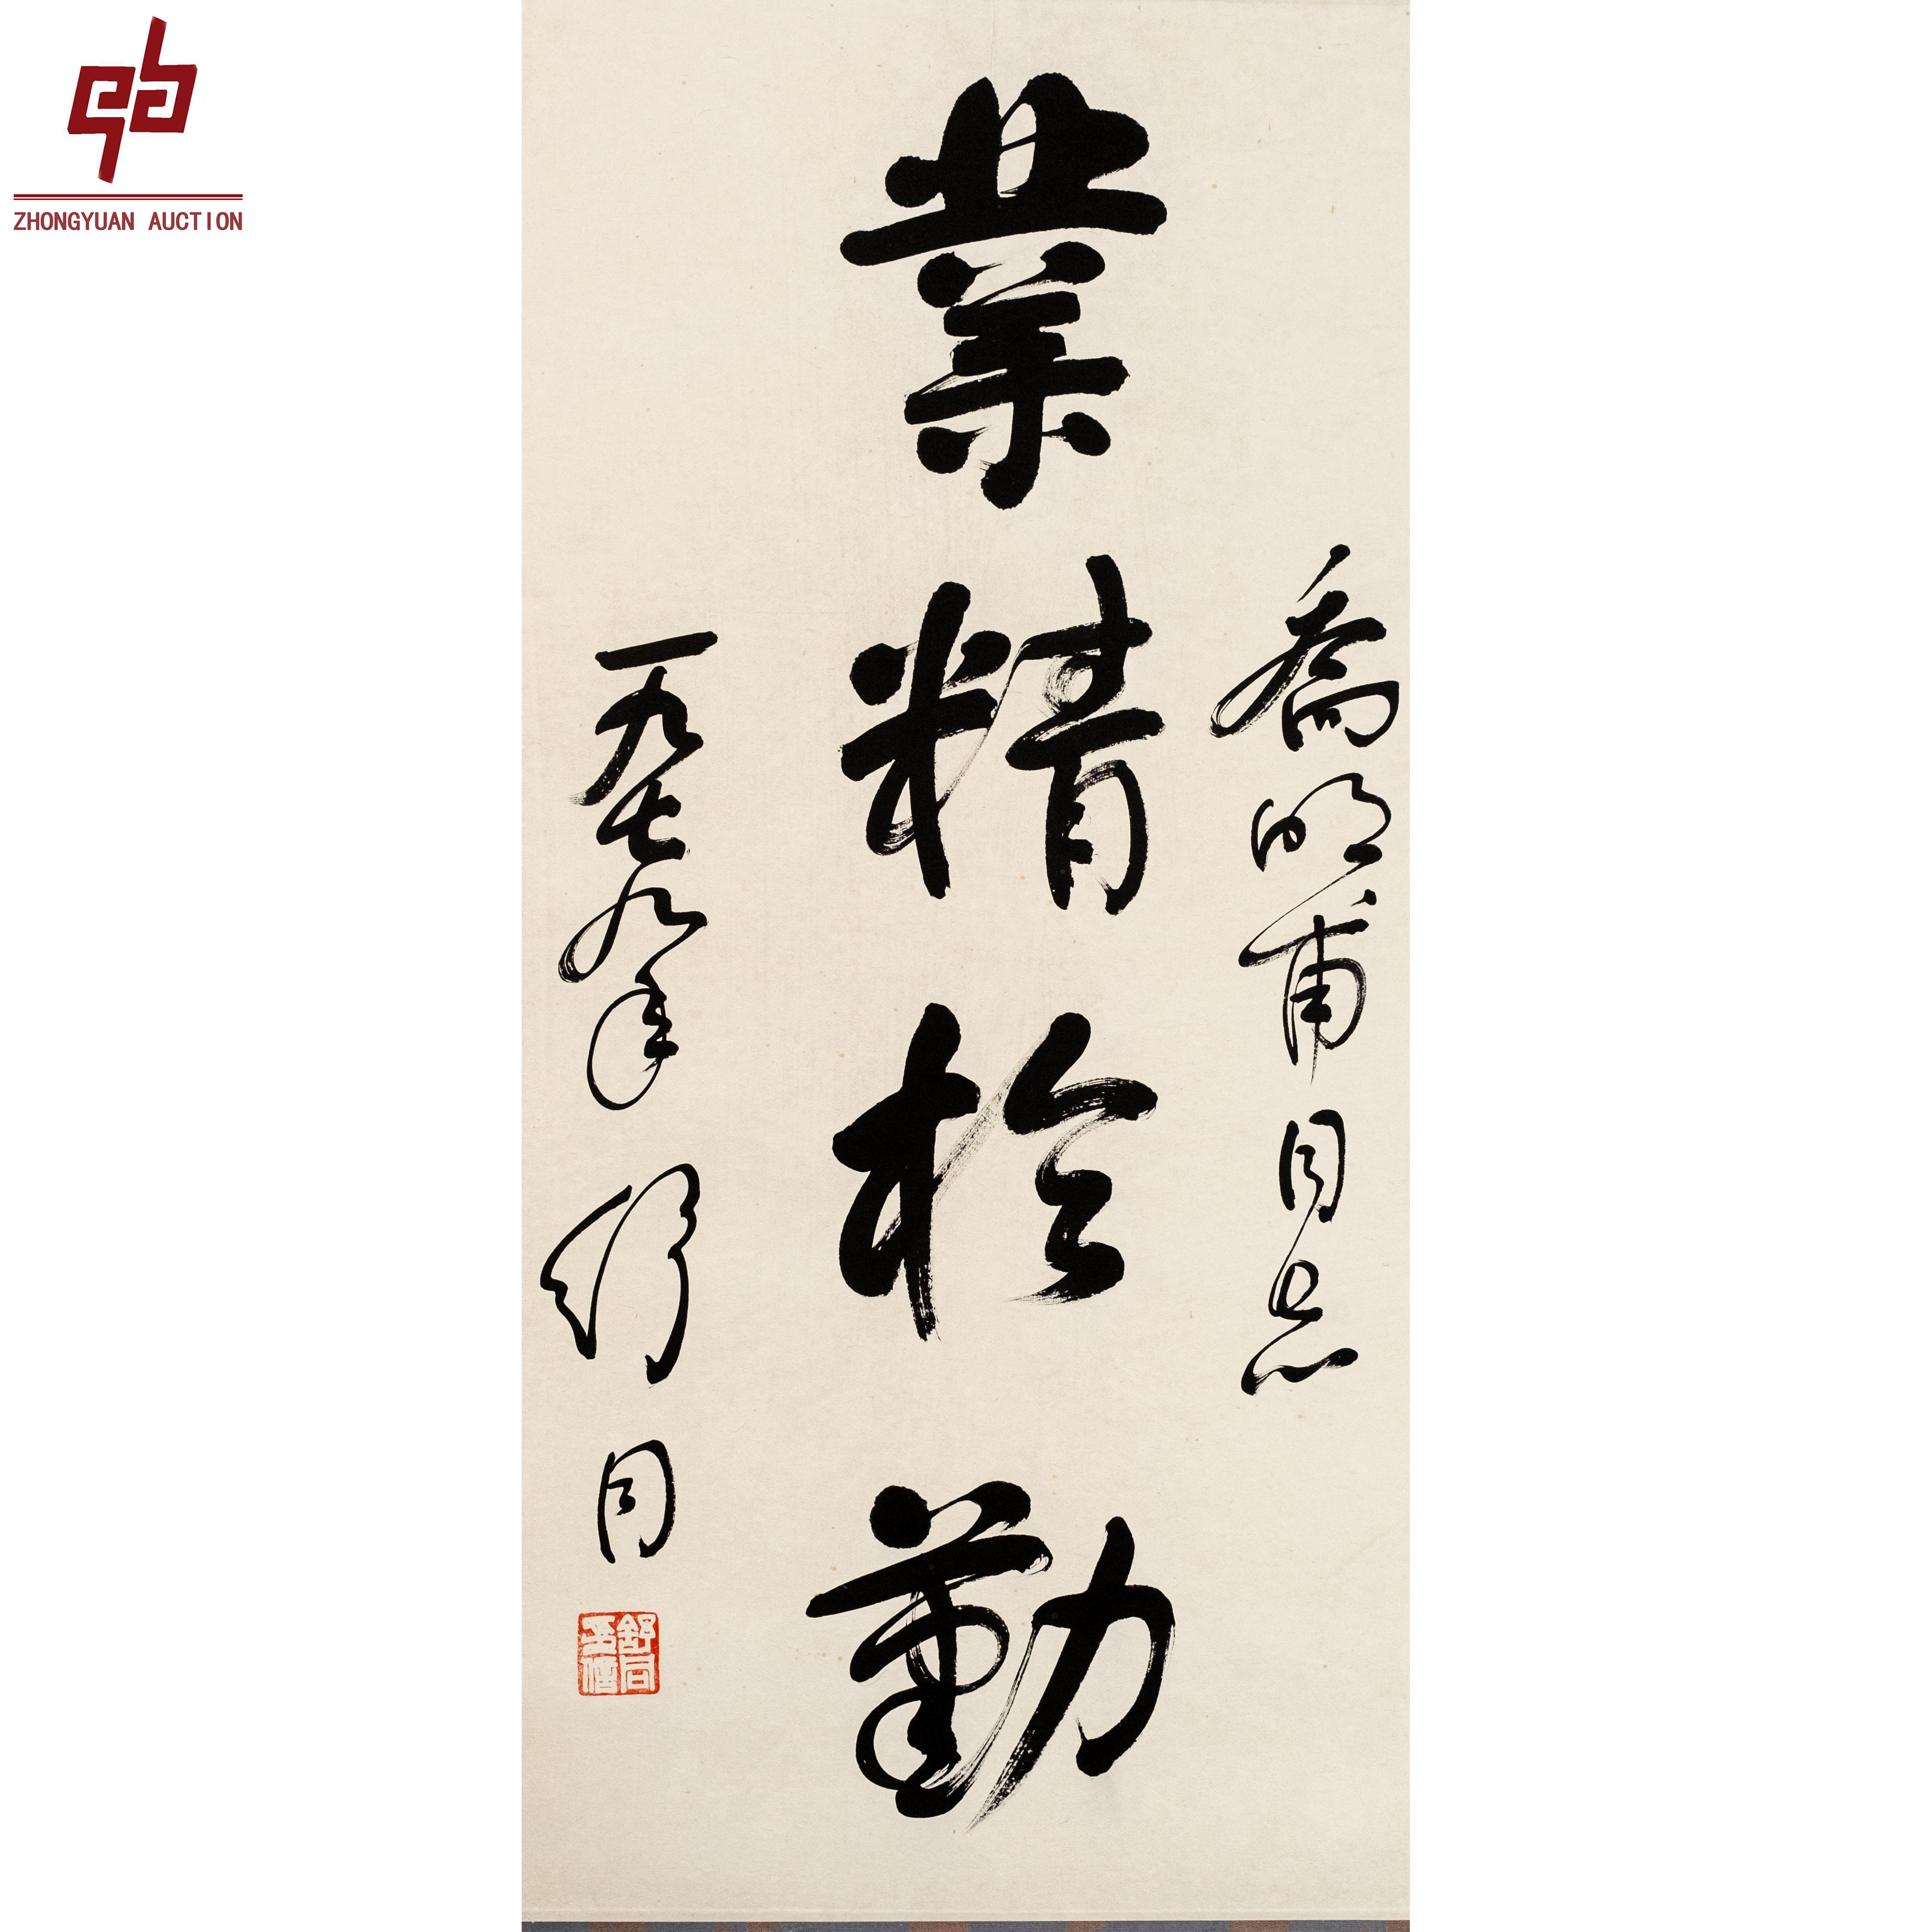 ZHONGYUAN AUCTION
喬明甫同志
業精於勤
一九七九年 舒同
舒同